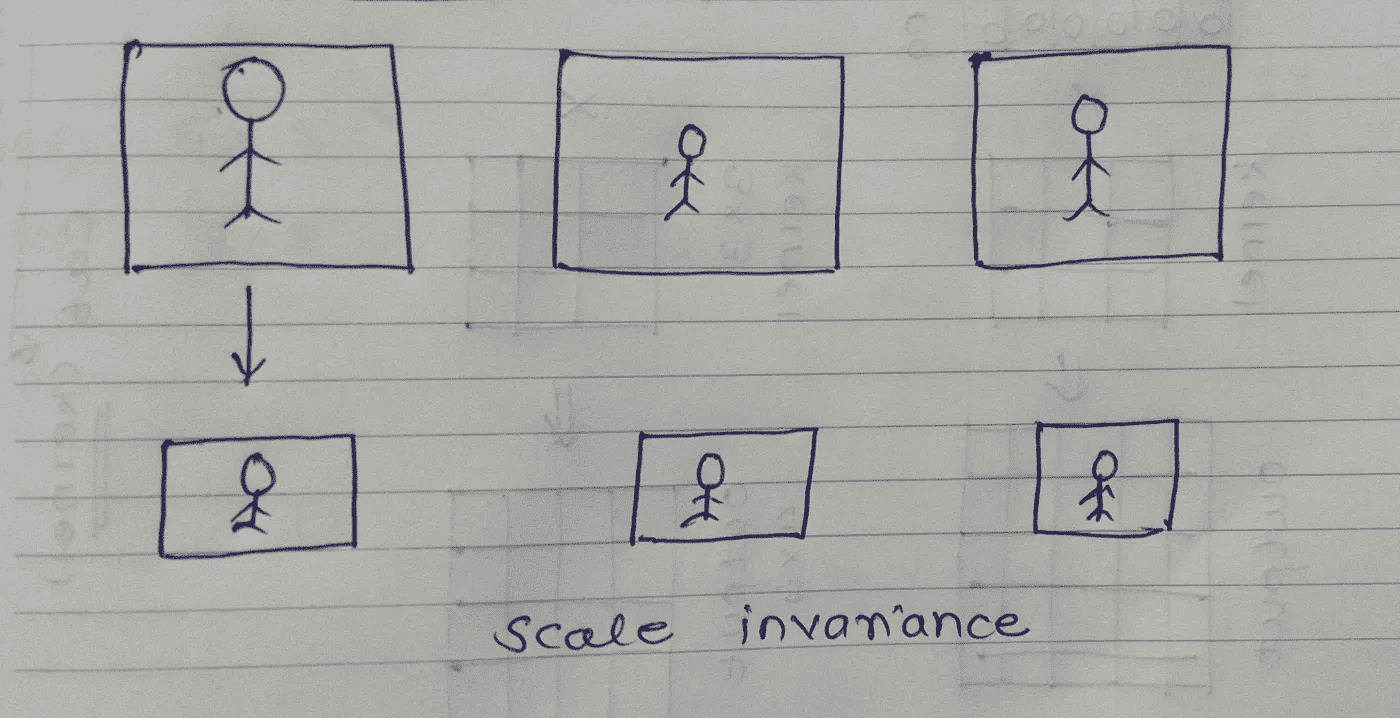 scale invariance